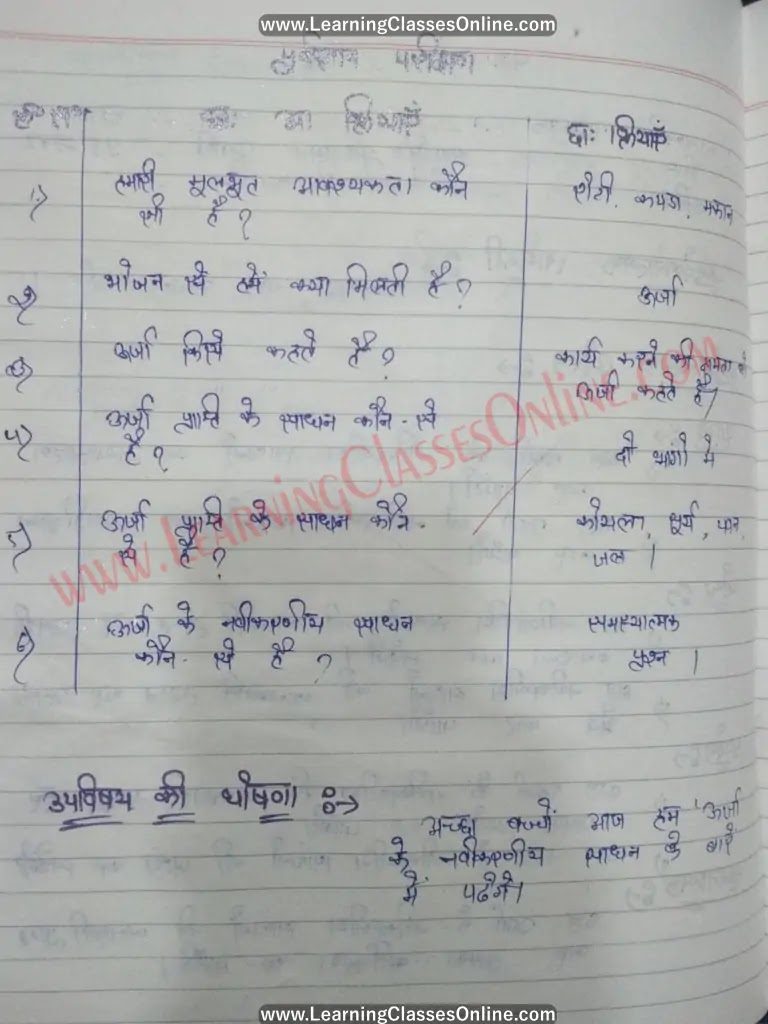 www.LearningClassesOnline.com
पूर्वज्ञान परीक्षण
छा. अ. क्रियाएँ छा: क्रियाएँ
1) हमारी मूलभूत आवश्यकता कौन रोटी, कपडा, मकान
सी है?
2) भोजन से हमें क्या मिलती है? ऊर्जा
3) ऊर्जा किसे कहते है? कार्य करने की क्षमता को
ऊर्जा कहते है।
4) ऊर्जा प्राप्ति के साधन कौन-से
है? दो भागो मे
5) ऊर्जा प्राप्ति के साधन कौन- कोयला, सूर्य, पवन,
से है? जल।
6) ऊर्जा के नवीकरणीय साधन समस्यात्मक
कौन-से है? प्रश्न।
www.LearningClassesOnline.com
उपविषय की घोषणा :→
अच्छा बच्चों आज हम 'ऊर्जा
के नवीकरणीय साधन के बारे
में पढेंगे।
www.LearningClassesOnline.com